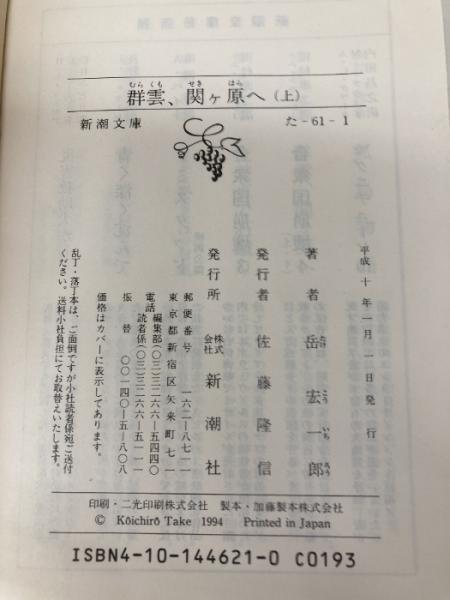 むらくも せき はら
群雲、関ヶ原へ(上)
新潮文庫 た-61-1
平成十年一月一日発行
著者 岳 宏一郎
たけ こう いち ろう
発行者 佐藤隆信
発行所 株式会社 新潮社
郵便番号 一六二-八七一一
東京都新宿区矢来町七一
電話 編集部(〇三)三二六六-五四四〇
読者係(〇三)三二六六-五一一一
振替 〇〇一四〇-五-八〇八
価格はカバーに表示してあります。
乱丁・落丁本は、ご面倒ですが小社読者係宛ご送付
ください。送料小社負担にてお取替えいたします。
印刷・二光印刷株式会社 製本・加藤製本株式会社
© Kōichirō Take 1994 Printed in Japan
ISBN4-10-144621-0 C0193